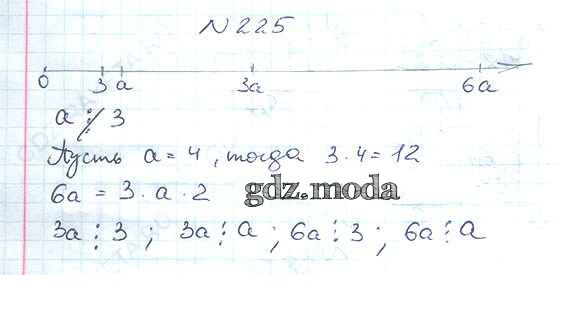 N 225
0 3 a 3a 6a
a ⋮̸ 3
Пусть a = 4, тогда 3 · 4 = 12
6a = 3 · a · 2 gdz.moda
3a ⋮ 3 ; 3a ⋮ a ; 6a ⋮ 3 ; 6a ⋮ a